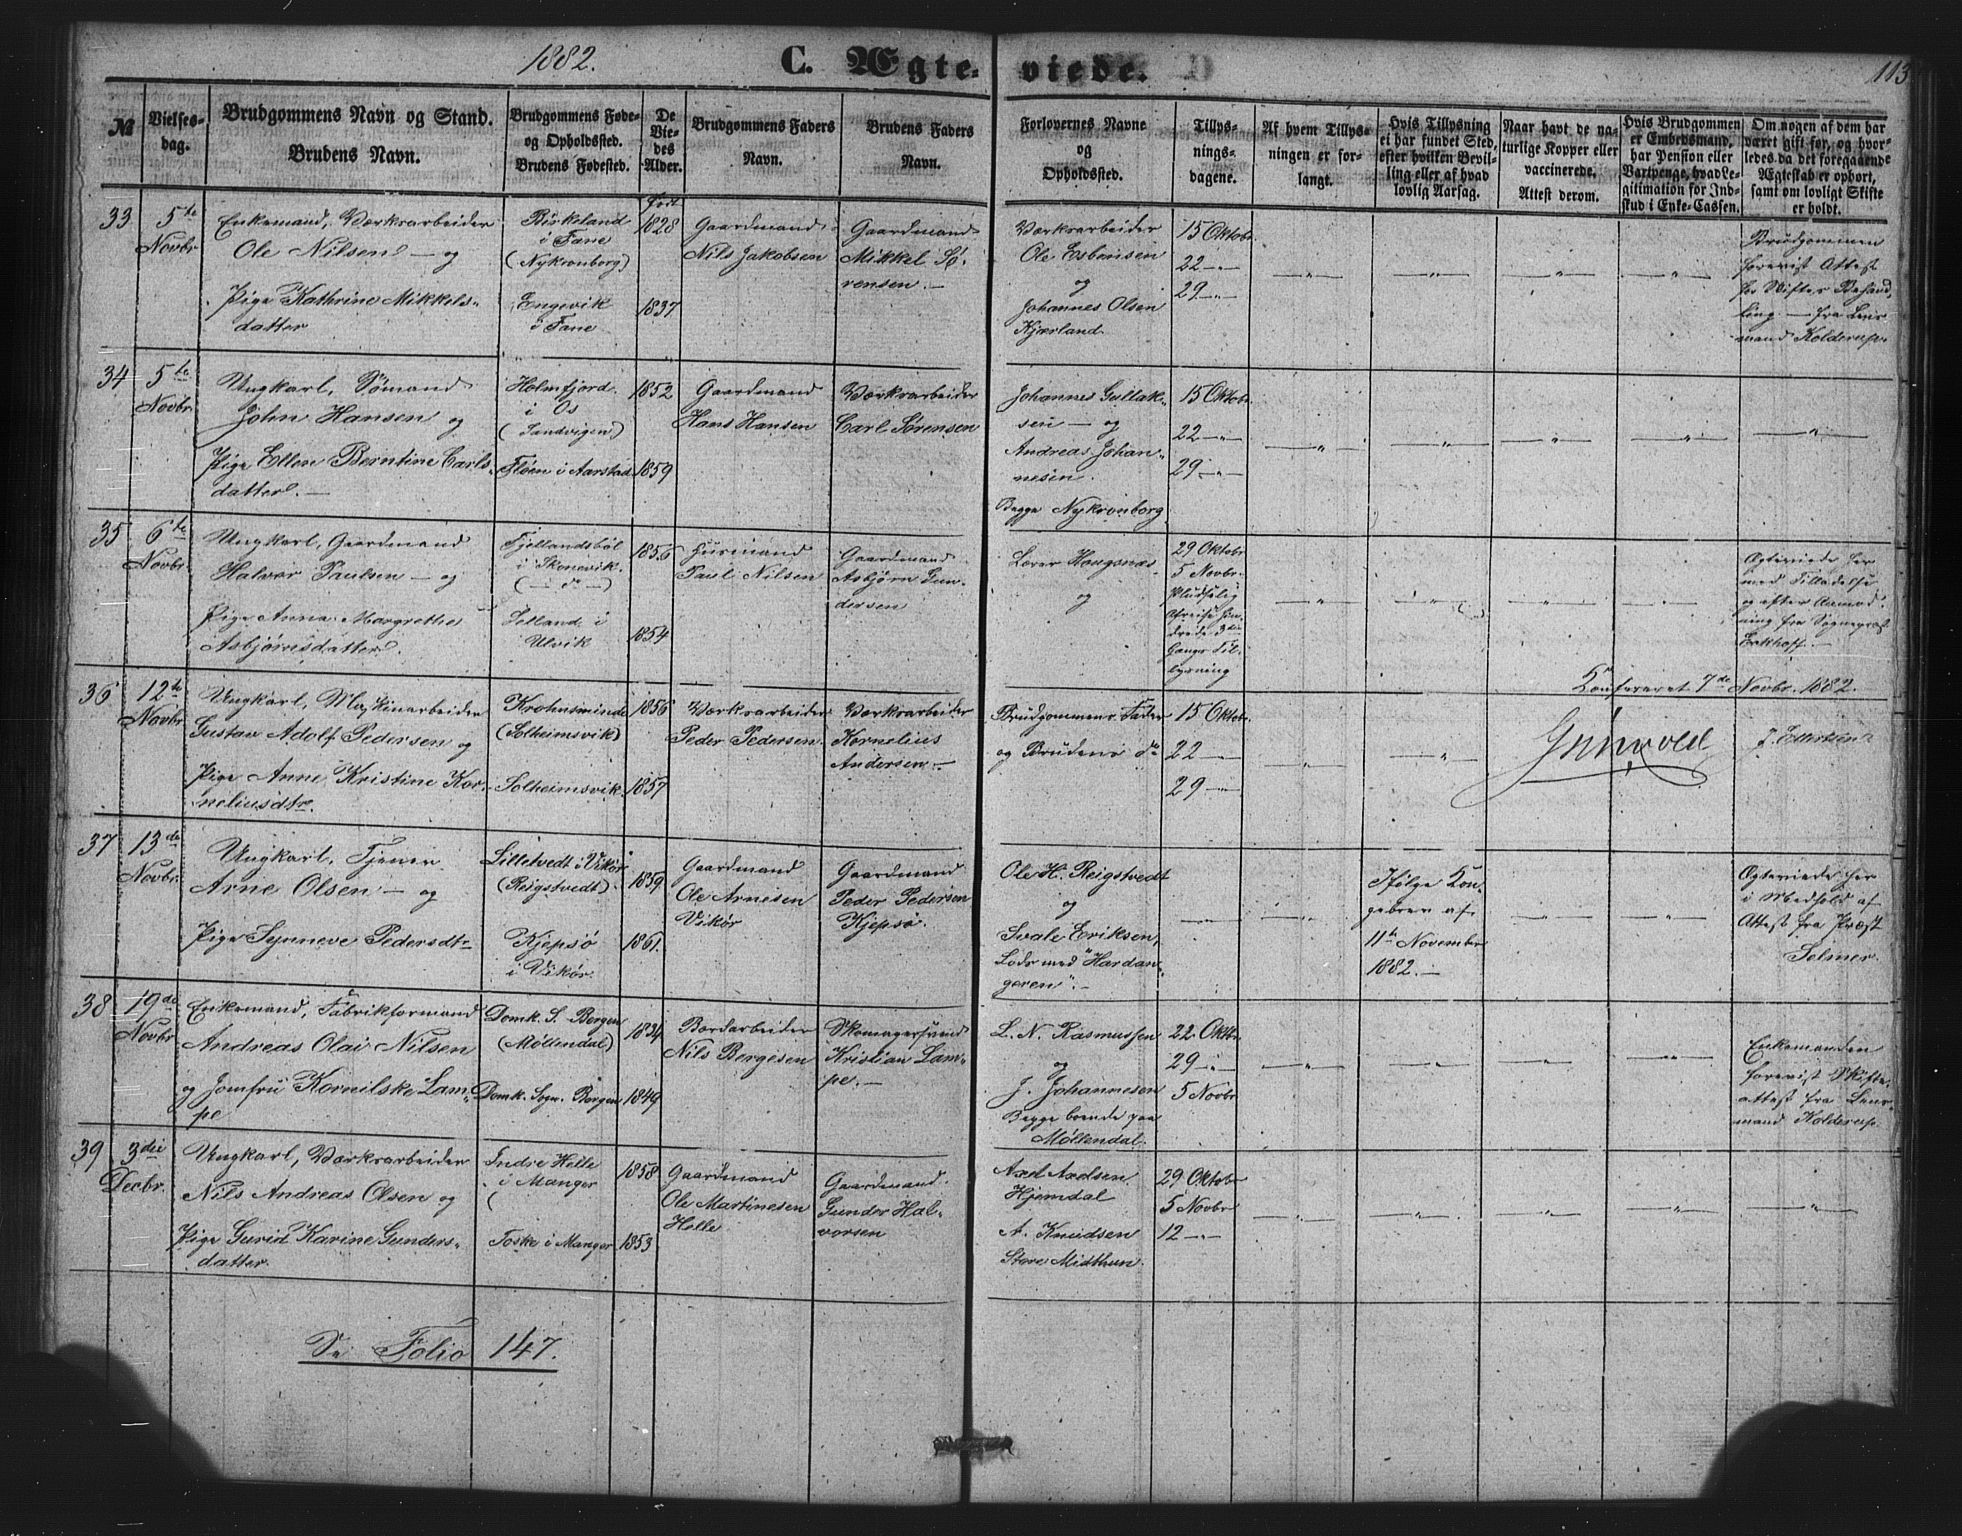 1882.
C. Ægteviede.
113
№
Vielses-
dag.
Brudgommens Navn og Stand.
Brudens Navn.
Brudgommens Føde-
og Opholdssted.
Brudens Fødested.
De
Vie-
des
Alder.
Brudgommens Faders
Navn.
Brudens Faders
Navn.
Forlovernes Navne
og
Opholdssted.
Tillys-
nings-
dagene.
Af hvem Tillys-
ningen er for-
langt.
Hvis Tillysning
ei har fundet Sted,
efter hvilken Bevil-
ling eller af hvad
lovlig Aarsag.
Naar havt de na-
turlige Kopper eller
vaccinerede.
Attest derom.
Hvis Brudgommen
er Embedsmand,
har Pension eller
Vartpenge, hvad Le-
gitimation for Ind-
skud i Enke-Cassen.
Om nogen af dem har
været gift før, og hvor-
ledes da det foregaaende
Ægteskab er ophørt,
samt om lovligt Skifte
er holdt.
Født
33
5te
Novbr
Enkemand, Værksarbeider
Ole Nilsen — og
Pige Kathrine Mikkels-
datter
Birkeland
i Fane
(Nykronborg)
Engevik
i Fane
1828
1837
Gaardmand
Nils Jakobsen
Gaardmand
Mikkel Sø-
rensen. —
Værksarbeider
Ole Esbensen
og
Johannes Olsen
Kjærland.
15 Oktobr.
22 — " —
29 — " —
— " —
— " —
— " —
— " —
Brudgommen
forevist Attest
for Skiftes Behand
ling — fra Lens
mand Kolderup.
34
5te
Novbr.
Ungkarl, Sømand
John Hansen og
Pige Ellen Berntine Carls-
datter. —
Holmfjord
i Os
(Sandvigen)
Fløen i Aarstad
1852
1859
Gaardmand
Hans Hansen
Værksarbeider
Carl Sørensen
Johannes Gullak-
sen — og
Andreas Johan-
nesen.
Begge Nykronborg
15 Oktobr.
22 — " —
29 — " —
— " —
— " —
— " —
— " —
— " —
35
6te
Novbr.
Ungkarl, Gaardmand
Halvor Paulsen — og
Pige Anna Margrethe
Asbjørnsdatter.
Fjellandsbøl
i Skonevik.
(— do —)
Selland i
Ulvik
1856
1854
Husmand
Paul Nilsen
Gaardmand
Asbjørn Gun-
dersen
Lærer Haugsnæs
og
29 Oktobr
5 Novbr.
Pludselig
Afreise hin-
drede 3die
Gangs Til-
lysning
— " —
— " —
— " —
— " —
Ægteviede her
med Tilladelse
og efter Anmod-
ning fra Sognepræst
Eckhoff. —
Konfereret 7de Novbr. 1882.
Grünvold
J. Ellertsen
36
12te
Novbr
Ungkarl, Maskinarbeider
Gustav Adolf Pedersen og
Pige Anne Kristine Kor-
neliusdtr.
Krohnsminde
(Solheimsvik)
Solheimsvik.
1856
1857
Værksarbeider
Peder Pedersen.
Værksarbeider
Kornelius
Andersen —
Brudgommens Fader
og Brudens do
15 Oktobr
22 — " —
29 — " —
— " —
— " —
37
13de
Novbr.
Ungkarl, Tjener
Arne Olsen — og
Pige Synneve Pedersdtr
Lilletvedt i Vikør
(Reigstvedt).
Kjepsø
i Vikør.
1859
1861.
Gaardmand
Ole Arnesen
Vikør
Gaardmand
Peder Pedersen
Kjepsø.
Ole H. Reigstvedt
og
Svale Eriksen,
Lods med "Hardan-
geren". —
— " —
— " —
Ifølge Kon-
gebrev af
11te November
1882. —
— " —
— " —
Ægteviede her
i Medhold af
Attest fra Præst
Selmer.
38
19de
Novbr
Enkemand, Fabrikformand
Andreas Olai Nilsen
og Jomfru Kornilske Lam-
pe
Domk. S. Bergen
(Møllendal)
Domk. Sogn. Bergen
1834
1849
Bordarbeider
Nils Børgesen
Skomagersvend
Kristian Lam-
pe. —
L. N. Rasmussen
og
J. Johannesen
Begge boende paa
Møllendal.
22 Oktbr.
29 — " —
5 Novbr
— " —
— " —
— " —
— " —
Enkemanden
forevist Skifte-
attest fra Lens-
mand Kolderup.
39
3die
Decbr.
Ungkarl, Værksarbeider
Nils Andreas Olsen og
Pige Gurid Karine Gunders-
datter.
Indre Helle
i Manger
(
Toske i Manger
1858
1853
Gaardmand
Ole Martinesen
Helle
Gaardmand.
Gunder Hal-
vorsen
Axel Axelsen
Hjemdal
A. Knudsen
Store Midthun.
29 Oktobr
5 Novbr
12 — " —
— " —
— " —
— " —
— " —
— " —
Se Folio 147.